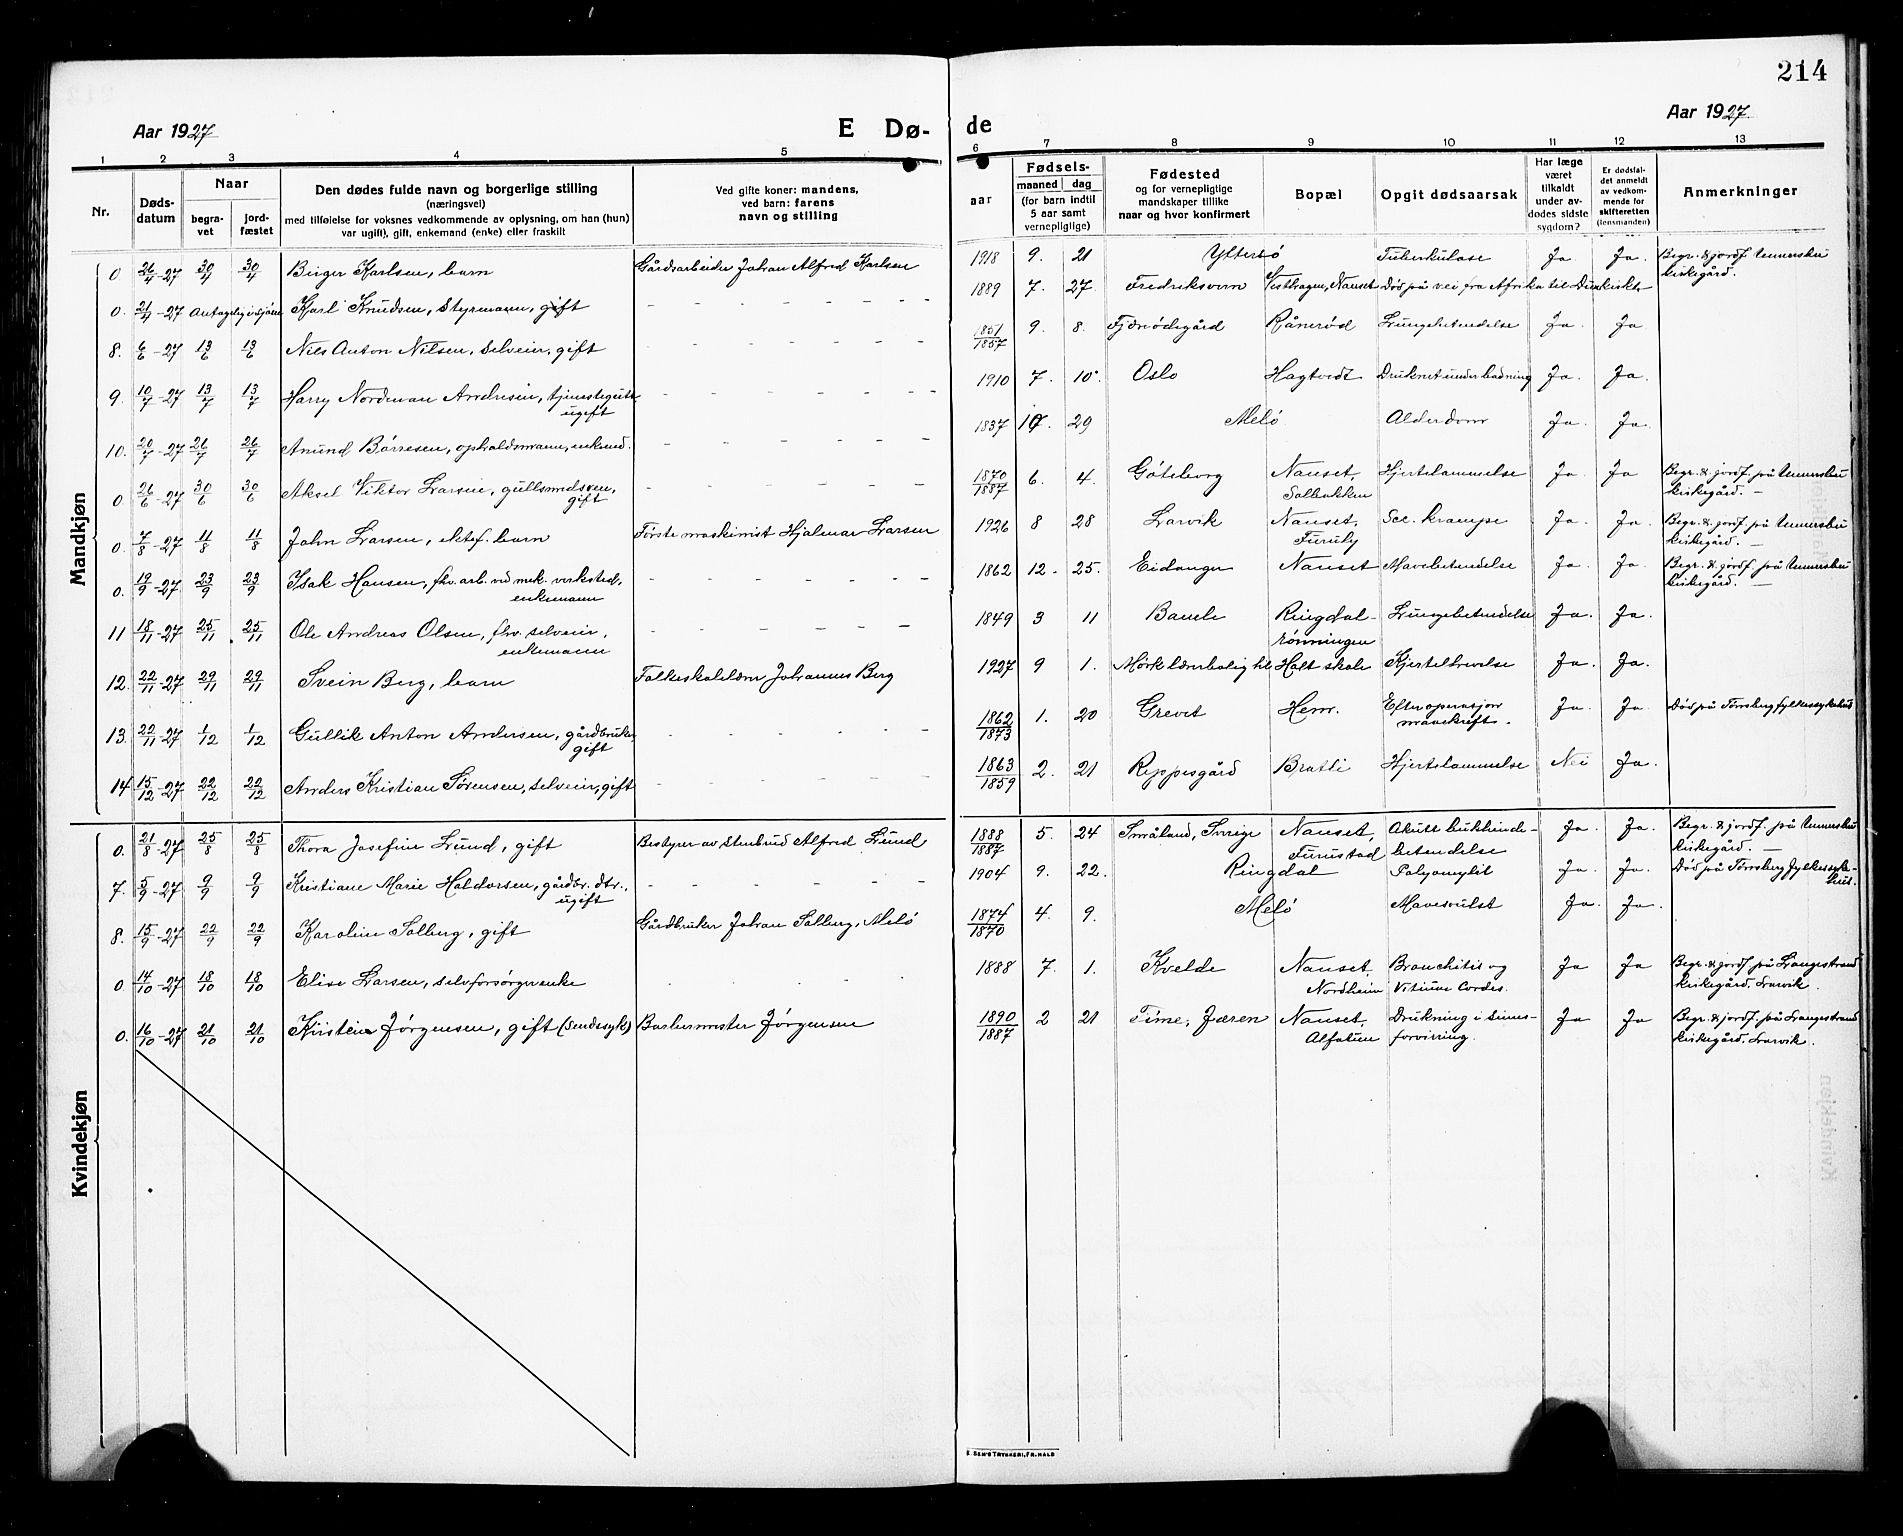 214
Aar 1927
E Dø-
de
Aar 1927.
1 2 3 4 5
6 7 8 9 10 11 12 13
Nr.
Dødsdatum
Naar
begravet
jordfæstet
Den dødes fulde navn og borgerlige stilling
(næringsvei)
med tilføielse for voksnes vedkommende av oplysning, om han (hun)
var ugift, gift, enkemand (enke) eller fraskilt
Ved gifte koner: mandens,
ved barn: farens
navn og stilling
aar
Fødsels-
maaned dag
(for barn indtil
5 aar samt
vernepligtige)
Fødested
og for vernepligtige
mandskaper tillike
naar og hvor konfirmert
Bopæl
Opgit dødsaarsak
Har læge
været
tilkaldt
under av-
dødes sidste
sygdom?
Er dødsfal-
det anmeldt
av vedkom-
mende for
skifteretten
(lensmanden)
Anmerkninger
Mandkjøn
0 26/4-27 30/4 30/4 Birger Karlsen, barn Gårdsarbeider Johan Alfred Karlsen 1918 9. 21 Ytterø Tuberkulose Ja Ja. Begr. & jordf. Undersbu kirkegård.
0. 21/4-27 Antagelig i sjøen Karl Knudsen, Styrmann, gift - - - - - - 1889 7. 27. Fredriksvern Vesthagen, Nanset Død på vei fra Afrika til Dunkirk
8. 6/6-27 13/6 13/6 Nils Anton Nilsen, selveier, gift - - - - - - 1851/1857 9. 8. Fjærødegård Rånerød Lungebetendelse Ja. Ja
9. 10/7-27 13/7 13/7 Harry Nordman Andresen, tjenestegutt ugift - - - - - - 1910 7. 10. Oslo Hagtvedt Druknet under badning Ja. Ja.
10. 20/7-27 26/7 26/7 Anund Børresen, opholdsmann, enkemd. - - - - - - 1837 10 29 Melö Alderdom Ja. Ja.
0 26/6-27 30/6 30/6 Aksel Viktor Larsen, gullsmedsven, gift - - - - - - 1870/1887 6. 4. Göteborg Nanset, Solbakken Hjertelammelse Ja. Ja Begr. & jordf. på Undersbu kirkegård. —
0. 7/8-27 11/8 11/8 John Larsen, ektef. barn Første maskinist Hjalmar Larsen 1926 8 28 Larvik Nanset, Furuly Ecl. krampe Ja. Ja Begr. & jordf. på Undersbu kirkegård. —
0. 19/9-27 23/9 23/9 Isak Hansen, fhv. arb. ved mek. verksted, enkemann - - - - - - 1862 12 - 25. Eidanger Nanset Mavebetendelse Ja. Ja. Begr. & jordf. på Undersbu kirkegård. —
11 18/11-27 25/11 25/11 Ole Andreas Olsen, fhv. selveier, enkemann - - - - - - 1849 3 11 Bamle Ringdal-rønningen Lungebetendelse Ja. Ja.
12. 22/11-27 29/11 29/11 Svein Berg, barn Folkeskolelærer Johannes Berg 1927 9 1. Mørk lærerbolig til Holt skole Kjertelsvelse Ja. Ja.
13. 22/11-27 1/12 1/12 Gullik Anton Andersen, gårdbruker, gift - - - - - - 1862/1873 1. 20 Grevet Hem. Efter operasjon Ja. Ja. Død på Tønsberg fylkessykehus
14 15/12-27 22/12 22/12 Anders Kristian Sørensen, selveier, gift - - - 1863/1859 2. 21 Reppesgård Bratli Hjertelammelse Nei Ja.
Kvindekjøn
0. 21/8-27 25/8 25/8 Thora Josefine Lund, gift Bestyrer av stenbrud Alfred Lund 1888/1887 5. 24 Småland, Sverige Nanset, Furustad Akutt bukhinde-betendelse Ja. Ja. Begr. & jordf. på Undersbu kirkegård. —
7. 5/9-27 9/9 9/9 Kristiane Marie Haldorsen, gårdbr. dtr., ugift - - - - - - 1904 9. 22. Ringdal Polyomyelit Ja. Ja. Død på Tønsberg fylkessyke-hus.
8. 15/9-27 22/9 22/9 Karoline Solberg, gift Gårdbruker Johan Solberg, Melö 1874/1870 4. 9. Melö Mavesvulst Ja. Ja.
0. 14/10-27 18/10 18/10 Elise Larsen, selvforsørger enke 1888 7. 1. Kvelde Nanset, Nordheim Bronchitis og Vitium Cordis. Ja Ja Begr. & jordf. på Langestrand kirkegård. Larvik.
0. 16/10-27 21/10 21/10 Kristine Jørgensen, gift (Sindssyk) Barbermester Jørgensen 1890/1887 2 21 Time, Jæren Nanset, Alfatun Drukning i sinns-forvirring. Ja Ja Begr. & jordf. på Langestrand kirkegård. Larvik.